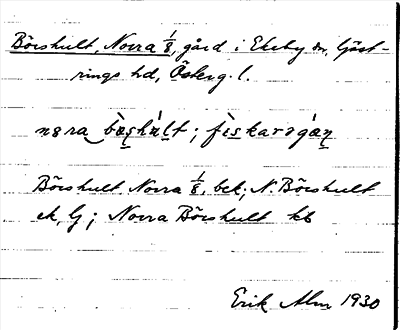 Börshult, Norra 1/8, gård i Ekeby sn, Göst-
rings hd, Österg. l.
nɷra bœṣhúlt; fìskaragán
Börshult Norra 1/8, bek; N. Börshult
ek, Gj; Norra Börshult kb
Erik Alm 1930